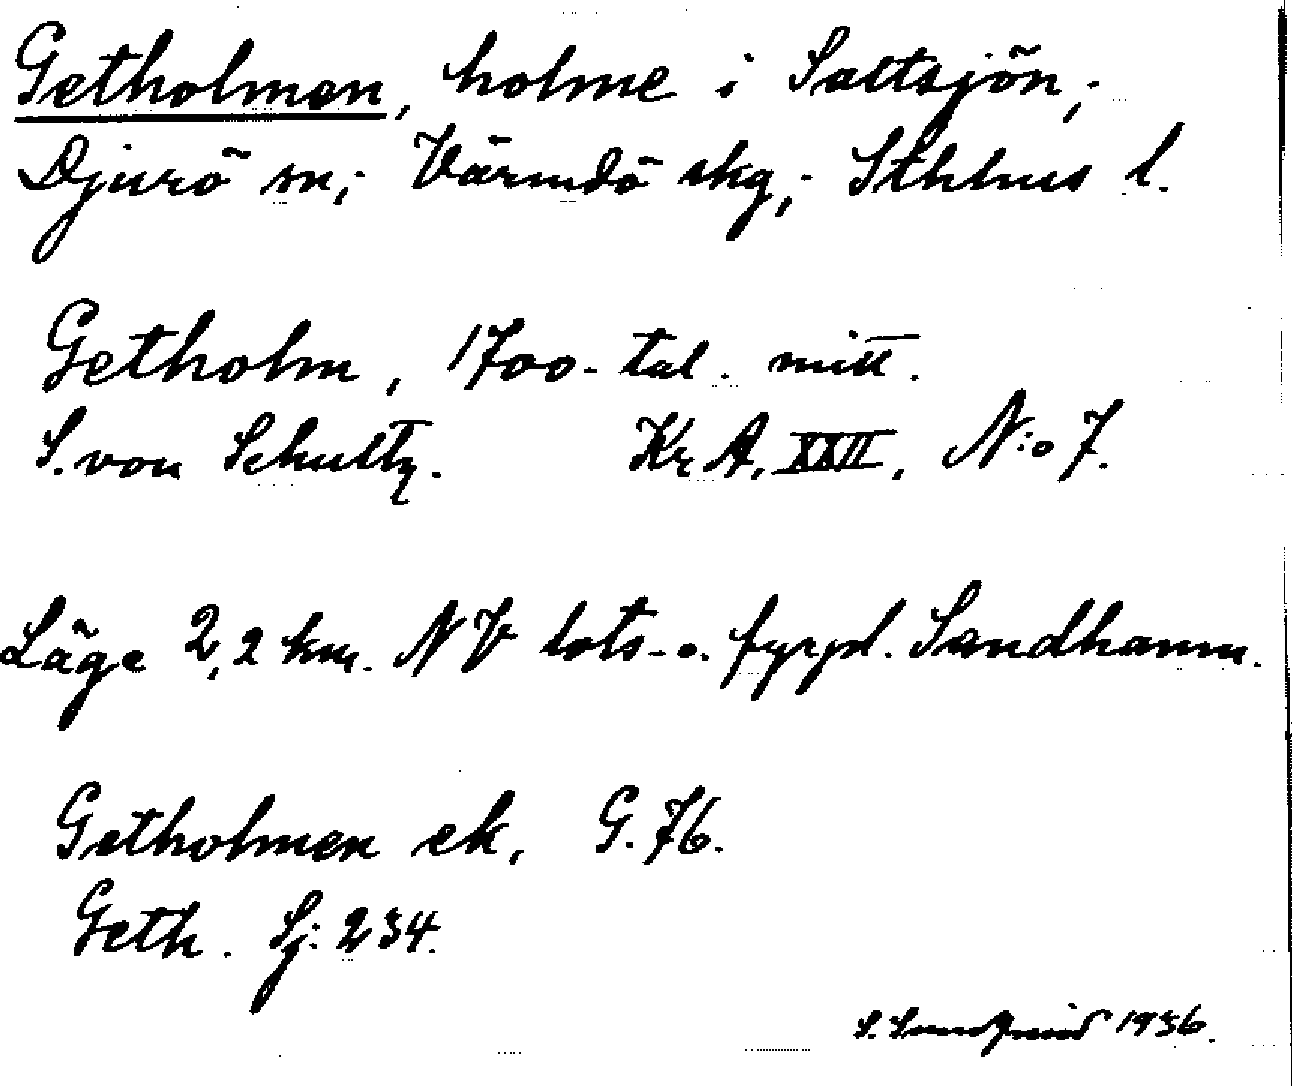 Getholmen, holme i Saltsjön;
Djurö sn; Värmdö skg; Sthlms l.
Getholm, 1700-tal. mitt.
S. von Schultz. Kr A, XXII, N:o 7.
Läge 2,2 km. NV lots- o. fyrpl. Sandhamn.
Getholmen ek, G. 76.
Geth. Sj: 234.
S. 1936.